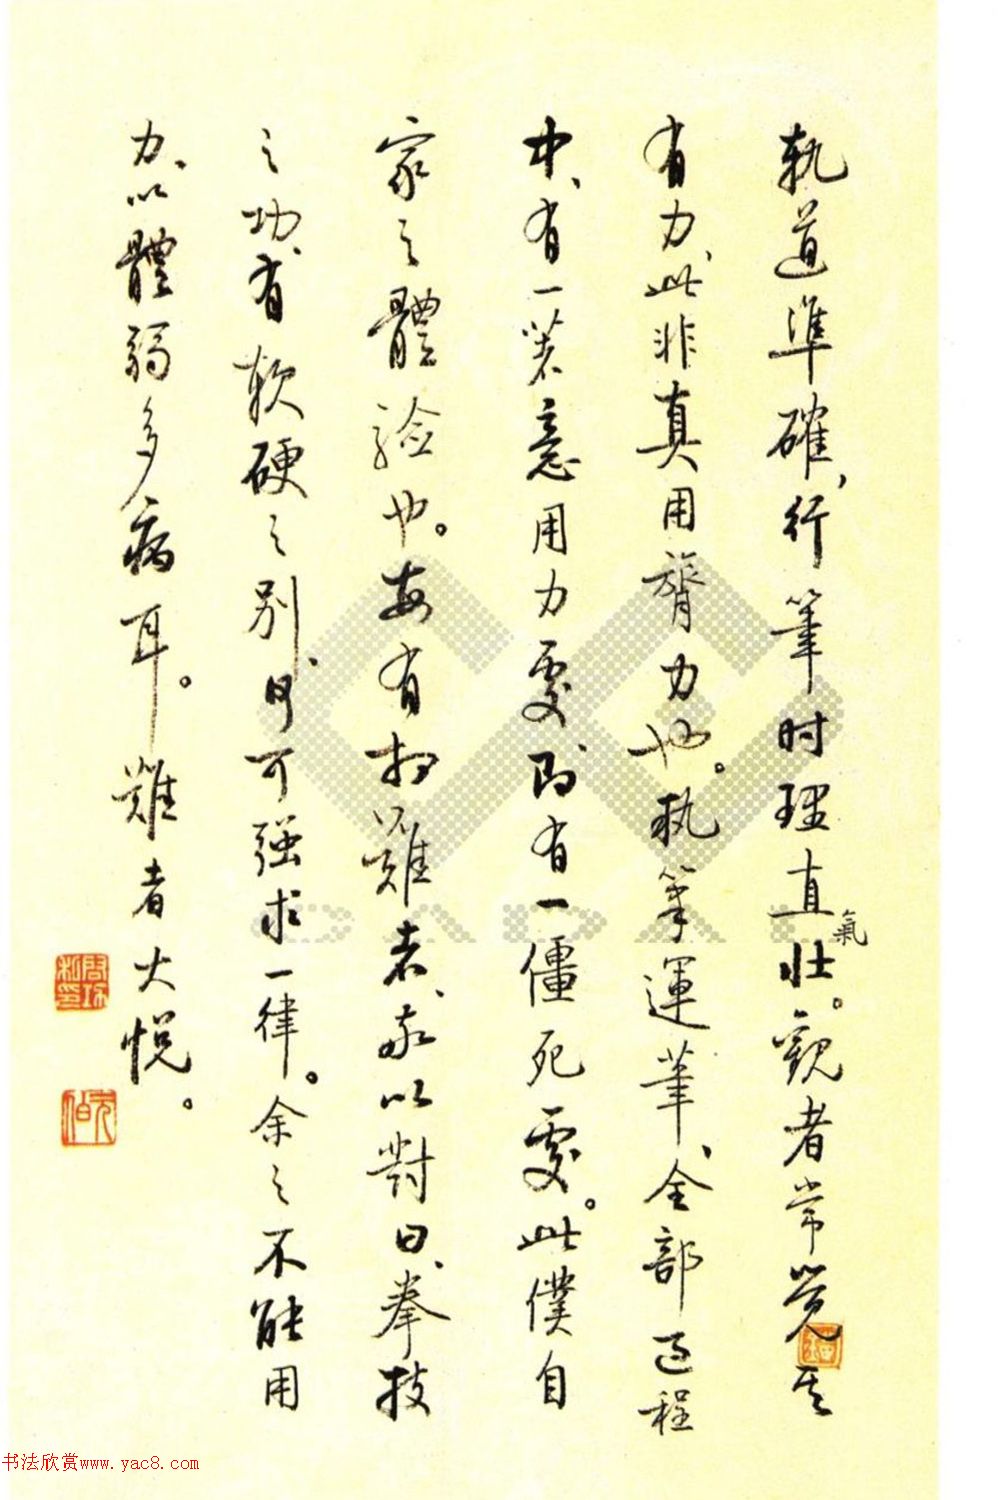 軌道準確，行筆时理直氣壯。觀者常覺其
有力、此非真用膂力也。執筆運筆、全部過程
中、有一著意用力處、即有一僵死處。此僕自
家之體验也。每有相難者、敬以對曰、拳技
之功、有軟硬之别、何可强求一律。余之不能用
力、以體弱多病耳。難者大悦。
啟功私印
元伯
书法欣赏www.yac8.com